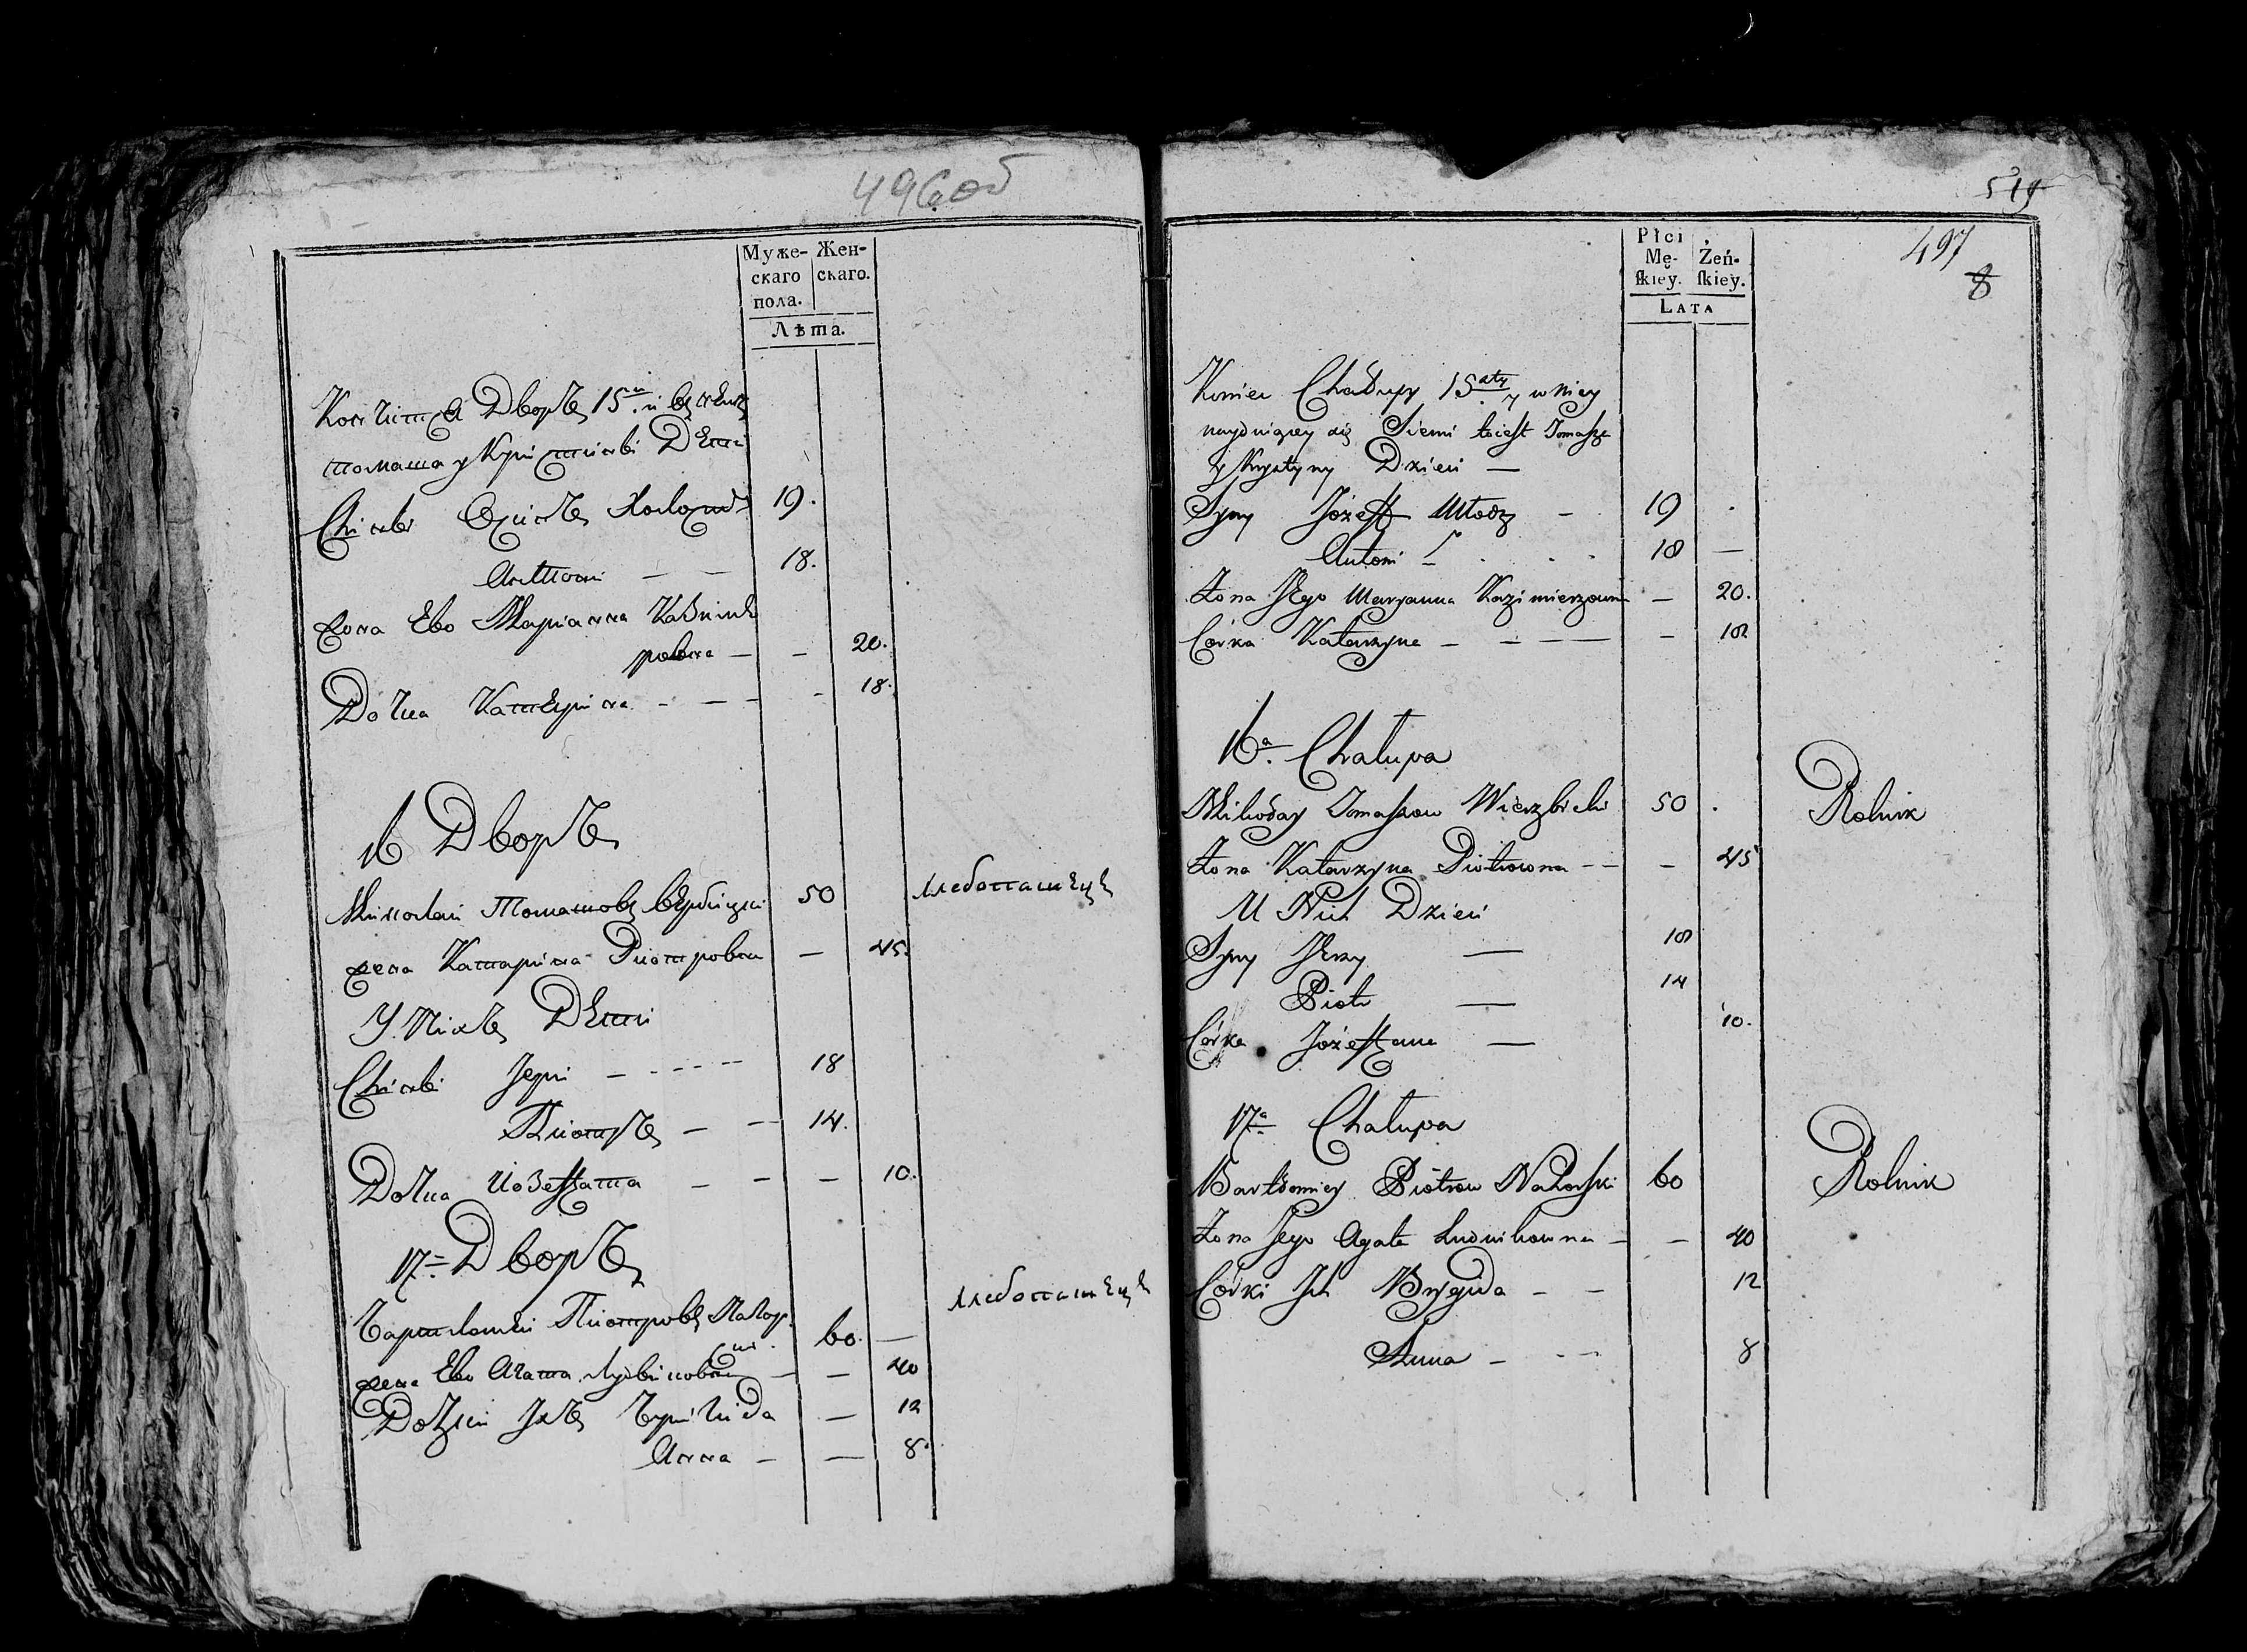 496 об
Муже- Жен-
скаго скаго.
пола.
Лѣта.
Дворъ 15
Томаша у Кристины Дети
Сыны Осипъ Холод 19.
Антони — — 18.
Жона Ево Марианна Казими
ровна — — 20.
Дочка Катерина - — - - 18.
16 Дворъ
Миколай Томашовъ Вербицки 50 хлебопашецъ
жена Катарина Пиотровна — 45.
У Нихъ Дети
Сыны Јери — - - - - 18
Пиотръ — — 14.
Дочка Иозеффата — — — 10.
17 Дворъ
Бартломей Пиотровъ Нагор 60. — хлебопашецъ
ски.
жена Ево Агата Лудвиковна — — 40
Дочки Јхъ Бригида — 12
Анна — — 8.
519
497
8
Płci
Mę- Żeń-
ſkiey. ſkiey.
LATA
Koniec Chałupy 15aty y w Niey
naydniącey się Siemi toiest Tomasza
y Krystyny Dzieci —
Syny Józeff Młody — 19 .
Antoni — . . . 18 —
Żona Jego Maryanna Kazimierzowna — 20.
Córka Katarzyna — — — — — 18
16a. Chałupa
Mikołay Tomaszow Wierzbicki 50 . Rolnik
Żona Katarzyna Piotrowna - - — 45
U Nich Dzieci
Syny Jerzy — 18
Piotr — 14
Córka Józeffata — 10.
17a Chałupa
Bartłomiey Piotrow Nahorski 60 Rolnik
Żona Jego Agata Ludwikowna — — 40
Córki Ich Brygida — — 12
Anna — - — 8